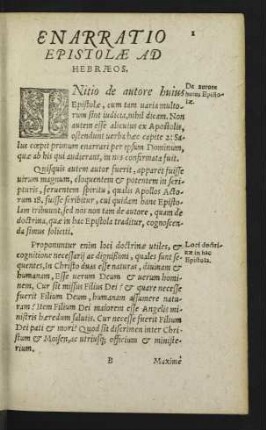 1
ENARRATIO
EPISTOLÆ AD
HEBRÆOS.
INitio de autore huius
Epistolæ, cum tam uaria multo-
rum sint iudicia, nihil dicam. Non
autem esse alicuius ex Apostolis,
ostendunt uerba hæc capite 2: Sa-
lus cœpit primum enarrari per ipsum Dominum,
quæ ab his qui audierant, in nos confirmata fuit.
Quisquis autem autor fuerit, apparet fuisse
uirum magnum, eloquentem & potentem in scri-
pturis, feruentem spiritu, qualis Apollos Acto-
rum 18. fuisse scribitur, cui quidam hanc Episto-
lam tribuunt, sed nos non tam de autore, quam de
doctrina, quæ in hac Epistola traditur, cognoscen-
da simus soliciti.
Proponuntur enim loci doctrinæ utiles, &
cognitione necessarij ac dignissimi, quales sunt se-
quentes, In Christo duas esse naturas, diuinam &
humanam, Esse uerum Deum & uerum homi-
nem. Cur sit missus Filius Dei? & quare necesse
fuerit Filium Deum, humanam assumere natu-
ram? Item Filium Dei maiorem esse Angelis mi-
nistris hæredum salutis. Cur necesse fuerit Filium
Dei pati & mori? Quod sit discrimen inter Chri-
stum & Moisen, ac utriusque officium & ministe-
rium.
B Maximè
De autore
huius Episto-
læ.
Loci doctri-
næ in hac
Epistola.